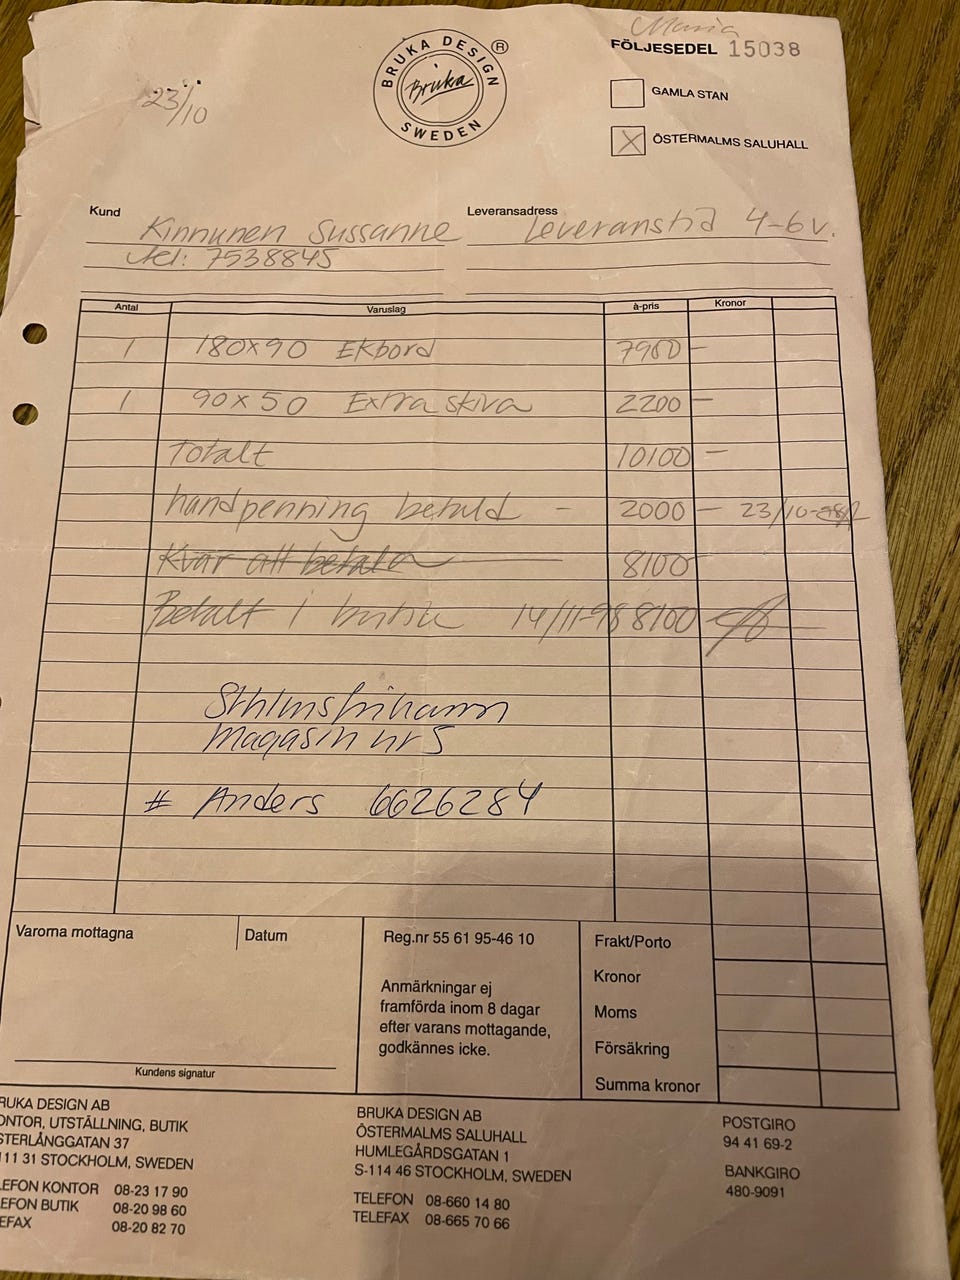 Maria
FÖLJESEDEL 15038
BRUKA DESIGN SWEDEN ®
Bruka
23/10
GAMLA STAN
ÖSTERMALMS SALUHALL
Kund
Kinnunen Sussanne
tel: 7538845
Leveransadress
Leveranstid 4-6 v.
Antal Varuslag à-pris Kronor
1 180x90 Ekbord 7900 -
1 90x50 Extra skiva 2200 -
Totalt 10100 -
handpenning betald - 2000 - 23/10-98
Kvar att betala 8100-
Betalt i butik 14/11-98 8100
Sthlms frihamn
Magasin nr 5
# Anders 6626284
Varorna mottagna
Datum
Kundens signatur
Reg.nr 55 61 95-46 10
Anmärkningar ej
framförda inom 8 dagar
efter varans mottagande,
godkännes icke.
Frakt/Porto
Kronor
Moms
Försäkring
Summa kronor
RUKA DESIGN AB
ONTOR, UTSTÄLLNING, BUTIK
STERLÅNGGATAN 37
111 31 STOCKHOLM, SWEDEN
LEFON KONTOR 08-23 17 90
EFON BUTIK 08-20 98 60
EFAX 08-20 82 70
BRUKA DESIGN AB
ÖSTERMALMS SALUHALL
HUMLEGÅRDSGATAN 1
S-114 46 STOCKHOLM, SWEDEN
TELEFON 08-660 14 80
TELEFAX 08-665 70 66
POSTGIRO
94 41 69-2
BANKGIRO
480-9091